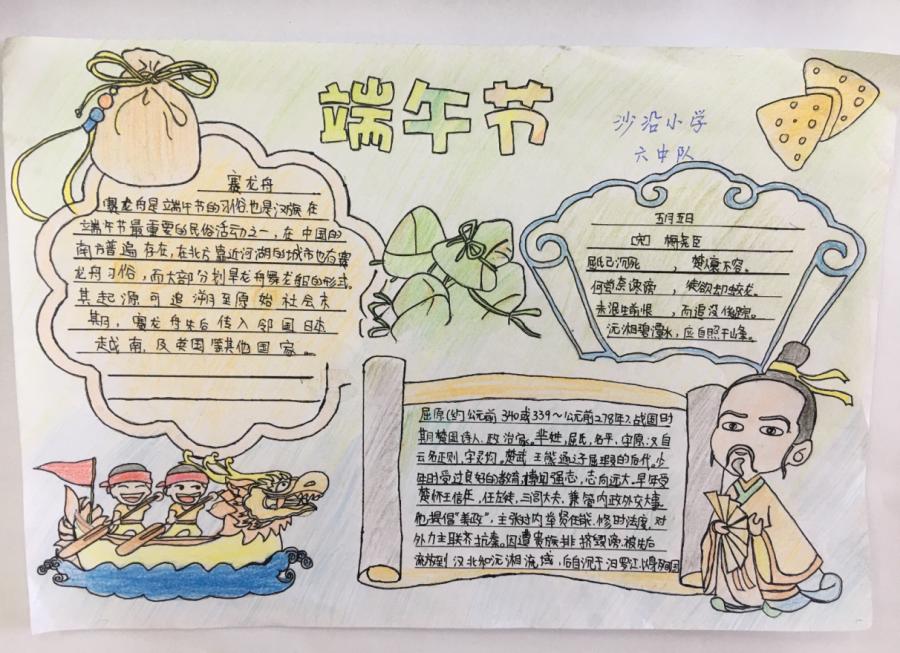 端午节
沙沿小学
六中队
赛龙舟
赛龙舟是端午节的习俗.也是汉族在
端午节最重要的民俗活动之一,在中国的
南方普遍存在,在北方靠近河湖的城市也有赛
龙舟习俗,而大部分划旱龙舟舞龙船的形式。
其起源可追溯至原始社会末
期,赛龙舟先后传入邻国日本
越南.及英国等其他国家。
五月五日
[宋] 梅尧臣
屈氏已沉死,楚人哀不容。
何尝奈谗谤,徒欲却蛟龙。
未泯生前恨,而追没后踪。
沅湘碧潭水,应自照千峰。
屈原(约公元前340或339~公元前278年),战国时
期楚国诗人、政治家。芈姓,屈氏,名平,字原,又自
云名正则,字灵均。楚武王熊通之子屈瑕的后代。少
年时受过良好的教育,博闻强志,志向远大。早年受
楚怀王信任,任左徒、三闾大夫,兼管内政外交大事
他提倡“美政”,主张对内举贤任能,修明法度,对
外力主联齐抗秦。因遭贵族排挤毁谤,被先后
流放到汉北和沅湘流域,后自沉于汨罗江,以身殉国